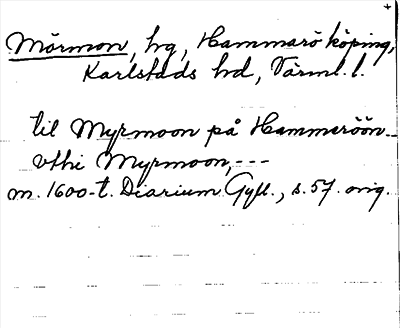 Mörmon, hg, Hammarö köping,
Karlstads hd, Värml. l.
til Myrmoon på Hammeröön--
vthi Myrmoon,---
m. 1600-t. Diarium Gyll., s. 57. orig.